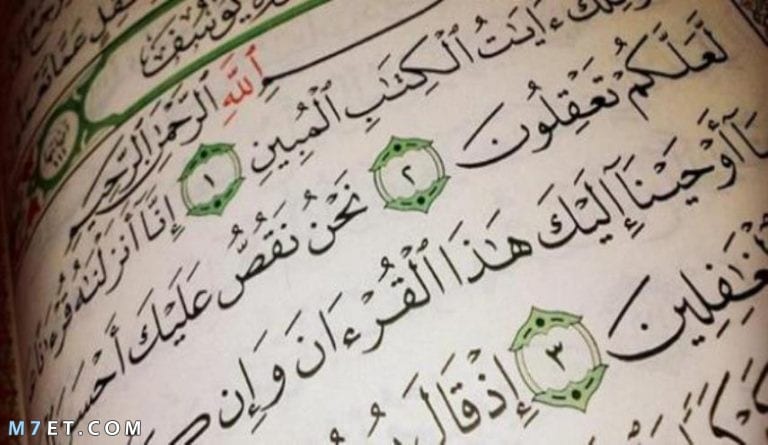 عَمَّا
يُوسُفَ
ٱللَّهِ ٱلرَّحْمَٰنِ ٱلرَّحِيمِ
ءَايَٰتُ ٱلْكِتَٰبِ ٱلْمُبِينِ ١ إِنَّآ أَنزَلْنَٰهُ قُرْءَٰنًا
لَّعَلَّكُمْ تَعْقِلُونَ ٢ نَحْنُ نَقُصُّ عَلَيْكَ أَحْسَنَ
أَوْحَيْنَآ إِلَيْكَ هَٰذَا ٱلْقُرْءَانَ وَإِن
ٱلْغَٰفِلِينَ ٣ إِذْ قَالَ
M7ET.COM